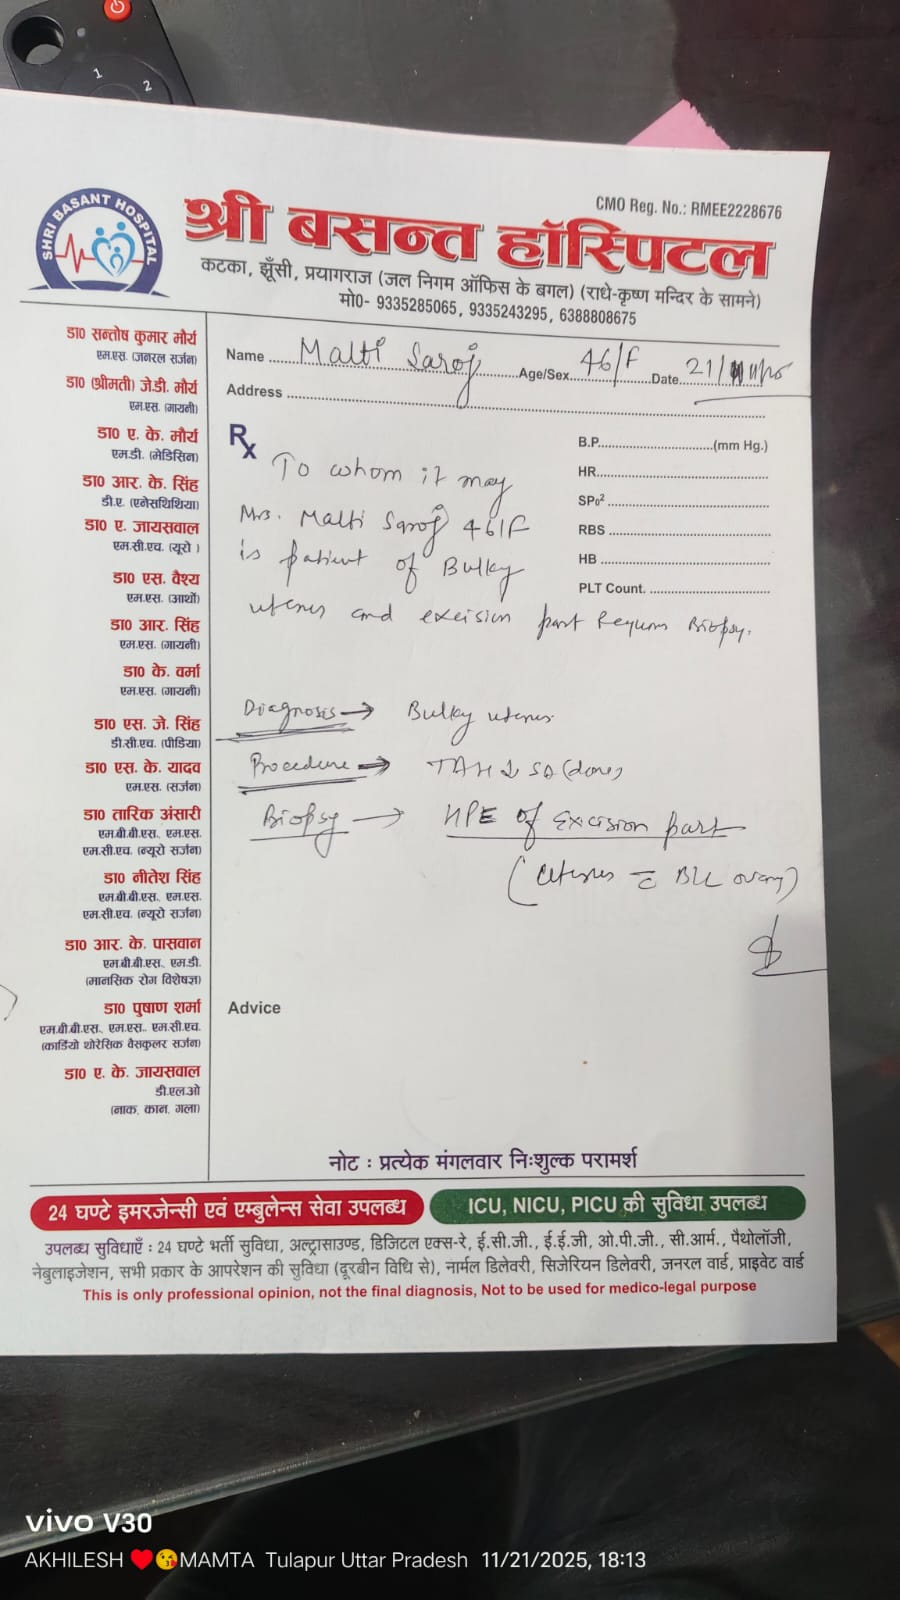 1
2
SHRI BASANT HOSPITAL
CMO Reg. No.: RMEE2228676
श्री बसन्त हॉस्पिटल
कटका, झूँसी, प्रयागराज (जल निगम ऑफिस के बगल) (राधे-कृष्ण मन्दिर के सामने)
मो0- 9335285065, 9335243295, 6388808675
डा0 सन्तोष कुमार मौर्य
एम.एस. (जनरल सर्जन)
डा0 (श्रीमती) जे.डी. मौर्य
एम.एस. (गायनी)
डा0 ए. के. मौर्य
एम.डी. (मेडिसिन)
डा0 आर. के. सिंह
डी.ए. (एनेसथिथिया)
डा0 ए. जायसवाल
एम.सी.एच. (यूरो )
डा0 एस. वैश्य
एम.एस. (आर्थो)
डा0 आर. सिंह
एम.एस. (गायनी)
डा0 के. वर्मा
एम.एस. (गायनी)
डा0 एस. जे. सिंह
डी.सी.एच. (पीडिया)
डा0 एस. के. यादव
एम.एस. (सर्जन)
डा0 तारिक अंसारी
एम.बी.बी.एस., एम.एस.
एम.सी.एच. (न्यूरो सर्जन)
डा0 नीतेश सिंह
एम.बी.बी.एस., एम.एस.
एम.सी.एच. (न्यूरो सर्जन)
डा0 आर. के. पासवान
एम.बी.बी.एस., एम.डी.
(मानसिक रोग विशेषज्ञ)
डा0 पुषाण शर्मा
एम.बी.बी.एस., एम.एस., एम.सी.एच.
(कार्डियो थोरेसिक वैसकुलर सर्जन)
डा0 ए. के. जायसवाल
डी.एल.ओ
(नाक, कान, गला)
Name Malti Saroj Age/Sex 46/F Date 21/11
Address
Rx
B.P. (mm Hg.)
HR
SPo2
RBS
HB
PLT Count.
To whom it may
Mrs. Malti Saroj 46/F
is patient of Bulky
uterus and excision part Requires Biopsy.
Diagnosis → Bulky uterus.
Procedure → TAH (done)
Biopsy → HPE of Excision part
(Uterus c̄ B/L ovary)
Advice
नोट : प्रत्येक मंगलवार निःशुल्क परामर्श
24 घण्टे इमरजेन्सी एवं एम्बुलेन्स सेवा उपलब्ध
ICU, NICU, PICU की सुविधा उपलब्ध
उपलब्ध सुविधाएँ : 24 घण्टे भर्ती सुविधा, अल्ट्रासाउण्ड, डिजिटल एक्स-रे, ई.सी.जी., ई.ई.जी, ओ.पी.जी., सी.आर्म., पैथोलॉजी,
नेबुलाइजेशन, सभी प्रकार के आपरेशन की सुविधा (दूरबीन विधि से), नार्मल डिलेवरी, सिजेरियन डिलेवरी, जनरल वार्ड, प्राइवेट वार्ड
This is only professional opinion, not the final diagnosis, Not to be used for medico-legal purpose
vivo V30
AKHILESH ❤️😘MAMTA Tulapur Uttar Pradesh 11/21/2025, 18:13